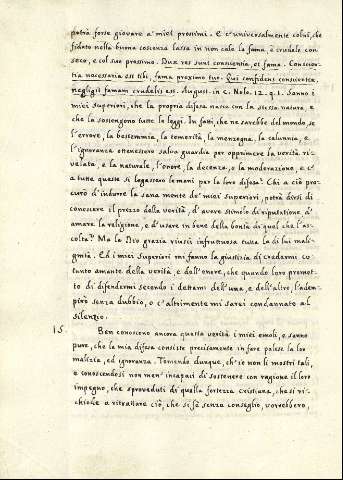 potrà forse giovare a' miei prossimi. E c' universalmente colui, che
fidato nella buona coscienza lassa in non cale la fama, è crudele con
seco, e col suo prossimo. Duæ res sunt conscientia, et fama. Conscien-
tia necessaria est tibi, fama proximo tuo. Qui confidens conscientiæ,
negligit famam crudelis est. August. in c. Nolo. 12. q. 1. Sanno i
miei superiori, che la propria difesa nasce con la stessa natura, e
che la sostengono tutte le leggi. In fati che ne sarebbe del mondo se
l'errore, la bestemmia, la temerità, la menzogna, la calunnia, e
l'ignoranza ottenessero salva guardia per opprimere la verità ri-
velata, e la naturale, l'onore, la decenza, o la moderazione, e c'
a tutte queste si legassero le mani per la loro difesa? Chi a ciò pro-
curò d'indurre la sana mente de' miei superiori, potrà dirsi di
conoscere il prezzo della verità, d'avere stimolo di riputatione, d'
amare la religione, e d'usare in bene della bontà di quel che l'as-
colta? Ma la Dio grazia riuscì infruttuosa tutta la di lui mali-
gnità. Ed i miei Superiori mi fanno la giustizia di credermi co-
tanto amante della verità, e dell'onore, che quando loro promet-
to di difendermi secondo i dettami dell'una, e dell'altro, l'adem-
pirò senza dubbio, o c'altrimente mi sarei condannato al
silenzio.
15. Ben conoscono ancora questa verità i miei emoli, e sanno
pure, che la mia difesa consiste precisamente in fare palese la loro
malizia, ed ignoranza. Temendo dunque, ch'io non li mostri tali,
e conoscendosi non men' incapaci di sostenere con ragione il loro
impegno, che sproveduti di quella fortezza cristiana, che si ri-
chiede a ritrattare ciò, che si fà senza conseglio, vorrebbero,